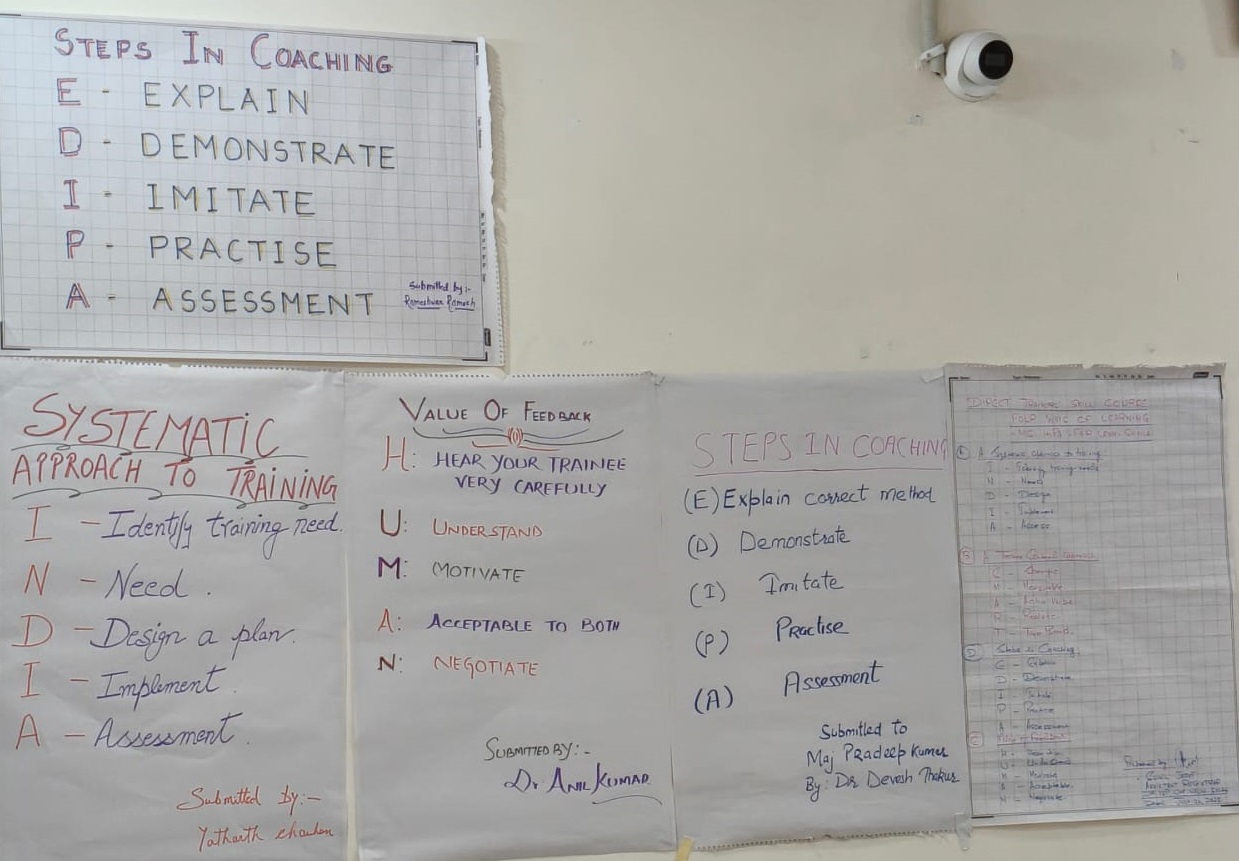 STEPS IN COACHING
E - EXPLAIN
D - DEMONSTRATE
I - IMITATE
P - PRACTISE
A - ASSESSMENT
Submitted by:-
Rameshwar
SYSTEMATIC
APPROACH TO TRAINING
I - Identify training need.
N - Need.
D - Design a plan.
I - Implement.
A - Assessment.
Submitted by:-
Yatharth chauhan
VALUE OF FEEDBACK
H: HEAR YOUR TRAINEE
VERY CAREFULLY
U: UNDERSTAND
M: MOTIVATE
A: ACCEPTABLE TO BOTH
N: NEGOTIATE
SUBMITTED BY:-
Dr ANIL KUMAR
STEPS IN COACHING
(E) Explain correct method
(D) Demonstrate
(I) Imitate
(P) Practise
(A) Assessment
Submitted to
Maj Pradeep Kumar
By: DR Devesh Thakur
DIRECT TRAINING SKILL COURSE
OF LEARNING
A
I - training needs
N - Need
D - Design
I - Implement
A - Assess
B
D Steps in Coaching:
E - Explain
D - Demonstrate
I - Imitate
P - Practise
A - Assessment
C
U - Understand
M - Motivate
A - Acceptable
N - Negotiate